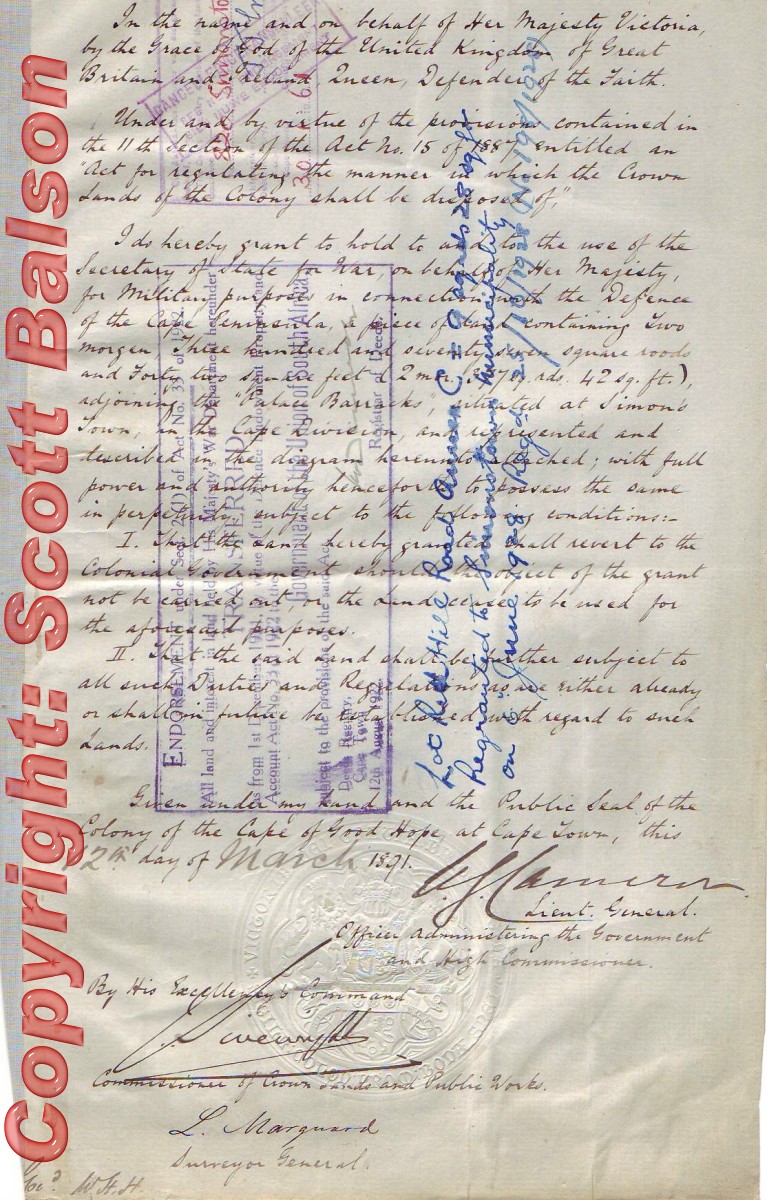 In the name and on behalf of Her Majesty Victoria,
by the Grace of God of the United Kingdom of Great
Britain and Ireland, Queen, Defender of the Faith.
Under and by virtue of the provisions contained in
the 11th section of the Act No. 15 of 1887 entitled an
"Act for regulating the manner in which the Crown
Lands of the Colony shall be disposed of,"
I do hereby grant to hold to and to the use of the
Secretary of State for War, on behalf of Her Majesty,
for Military purposes in connection with the Defence
of the Cape Peninsula, a piece of land containing Two
morgen, Three hundred and seventy seven square roods
and Forty two square feet (2 mor, 377 sq. rds. 42 sq. ft.),
adjoining the "Palace Barracks", situated at Simon's
Town, in the Cape Division, and represented and
described in the diagram hereunto attached; with full
power and authority henceforth to possess the same
in perpetuity subject to the following conditions:-
I. That the land hereby granted shall revert to the
Colonial Government should the object of the grant
not be carried out, or the Land cease to be used for
the aforesaid purposes.
II. That the said Land shall be further subject to
all such Duties and Regulations as are either already
or shall in future be established with regard to such
Lands.
Given under my hand and the Public Seal of the
Colony of the Cape of Good Hope, at Cape Town, this
12th day of March 1891.
Lieut. General.
Officer Administering the Government
and High Commissioner.
By His Excellency's Command
Commissioner of Crown Lands and Public Works.
L. Marquard
Surveyor General
W.H.H.
Copyright: Scott Balson
ENDORSEMENT under Sect. 2 (1) of Act No. 33 of 1922.
All land and interest in land held by His Majesty's War Department hereunder
TRANSFERRED
as from 1st
Account Act No. 33 of 1922 to the
Government of the Union of South Africa
subject to the provisions of the said Act.
Deeds Registry,
Cape Town
12th August 1922
Registrar of Deeds.
Lot Red Hill Road Annex C = 9 sq rds 28 sq ft
Regranted to Simonstown Municipality
on 6 June 1928